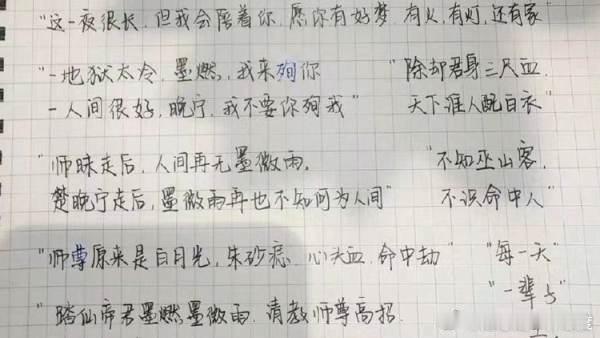 "这一夜很长，但我会陪着你，愿你有好梦，有火，有灯，还有家"
"-地狱太冷，墨燃，我来殉你
-人间很好，晚宁，我不要你殉我"
"除却君身三尺血，
天下谁人配白衣"
"师昧走后，人间再无墨微雨，
楚晚宁走后，墨微雨再也不知何为人间"
"不知巫山客，
不识命中人"
"师尊原来是白月光，朱砂痣，心头血，命中劫"
"每一天"
"一辈子"
"踏仙帝君墨燃墨微雨，请教师尊高招.